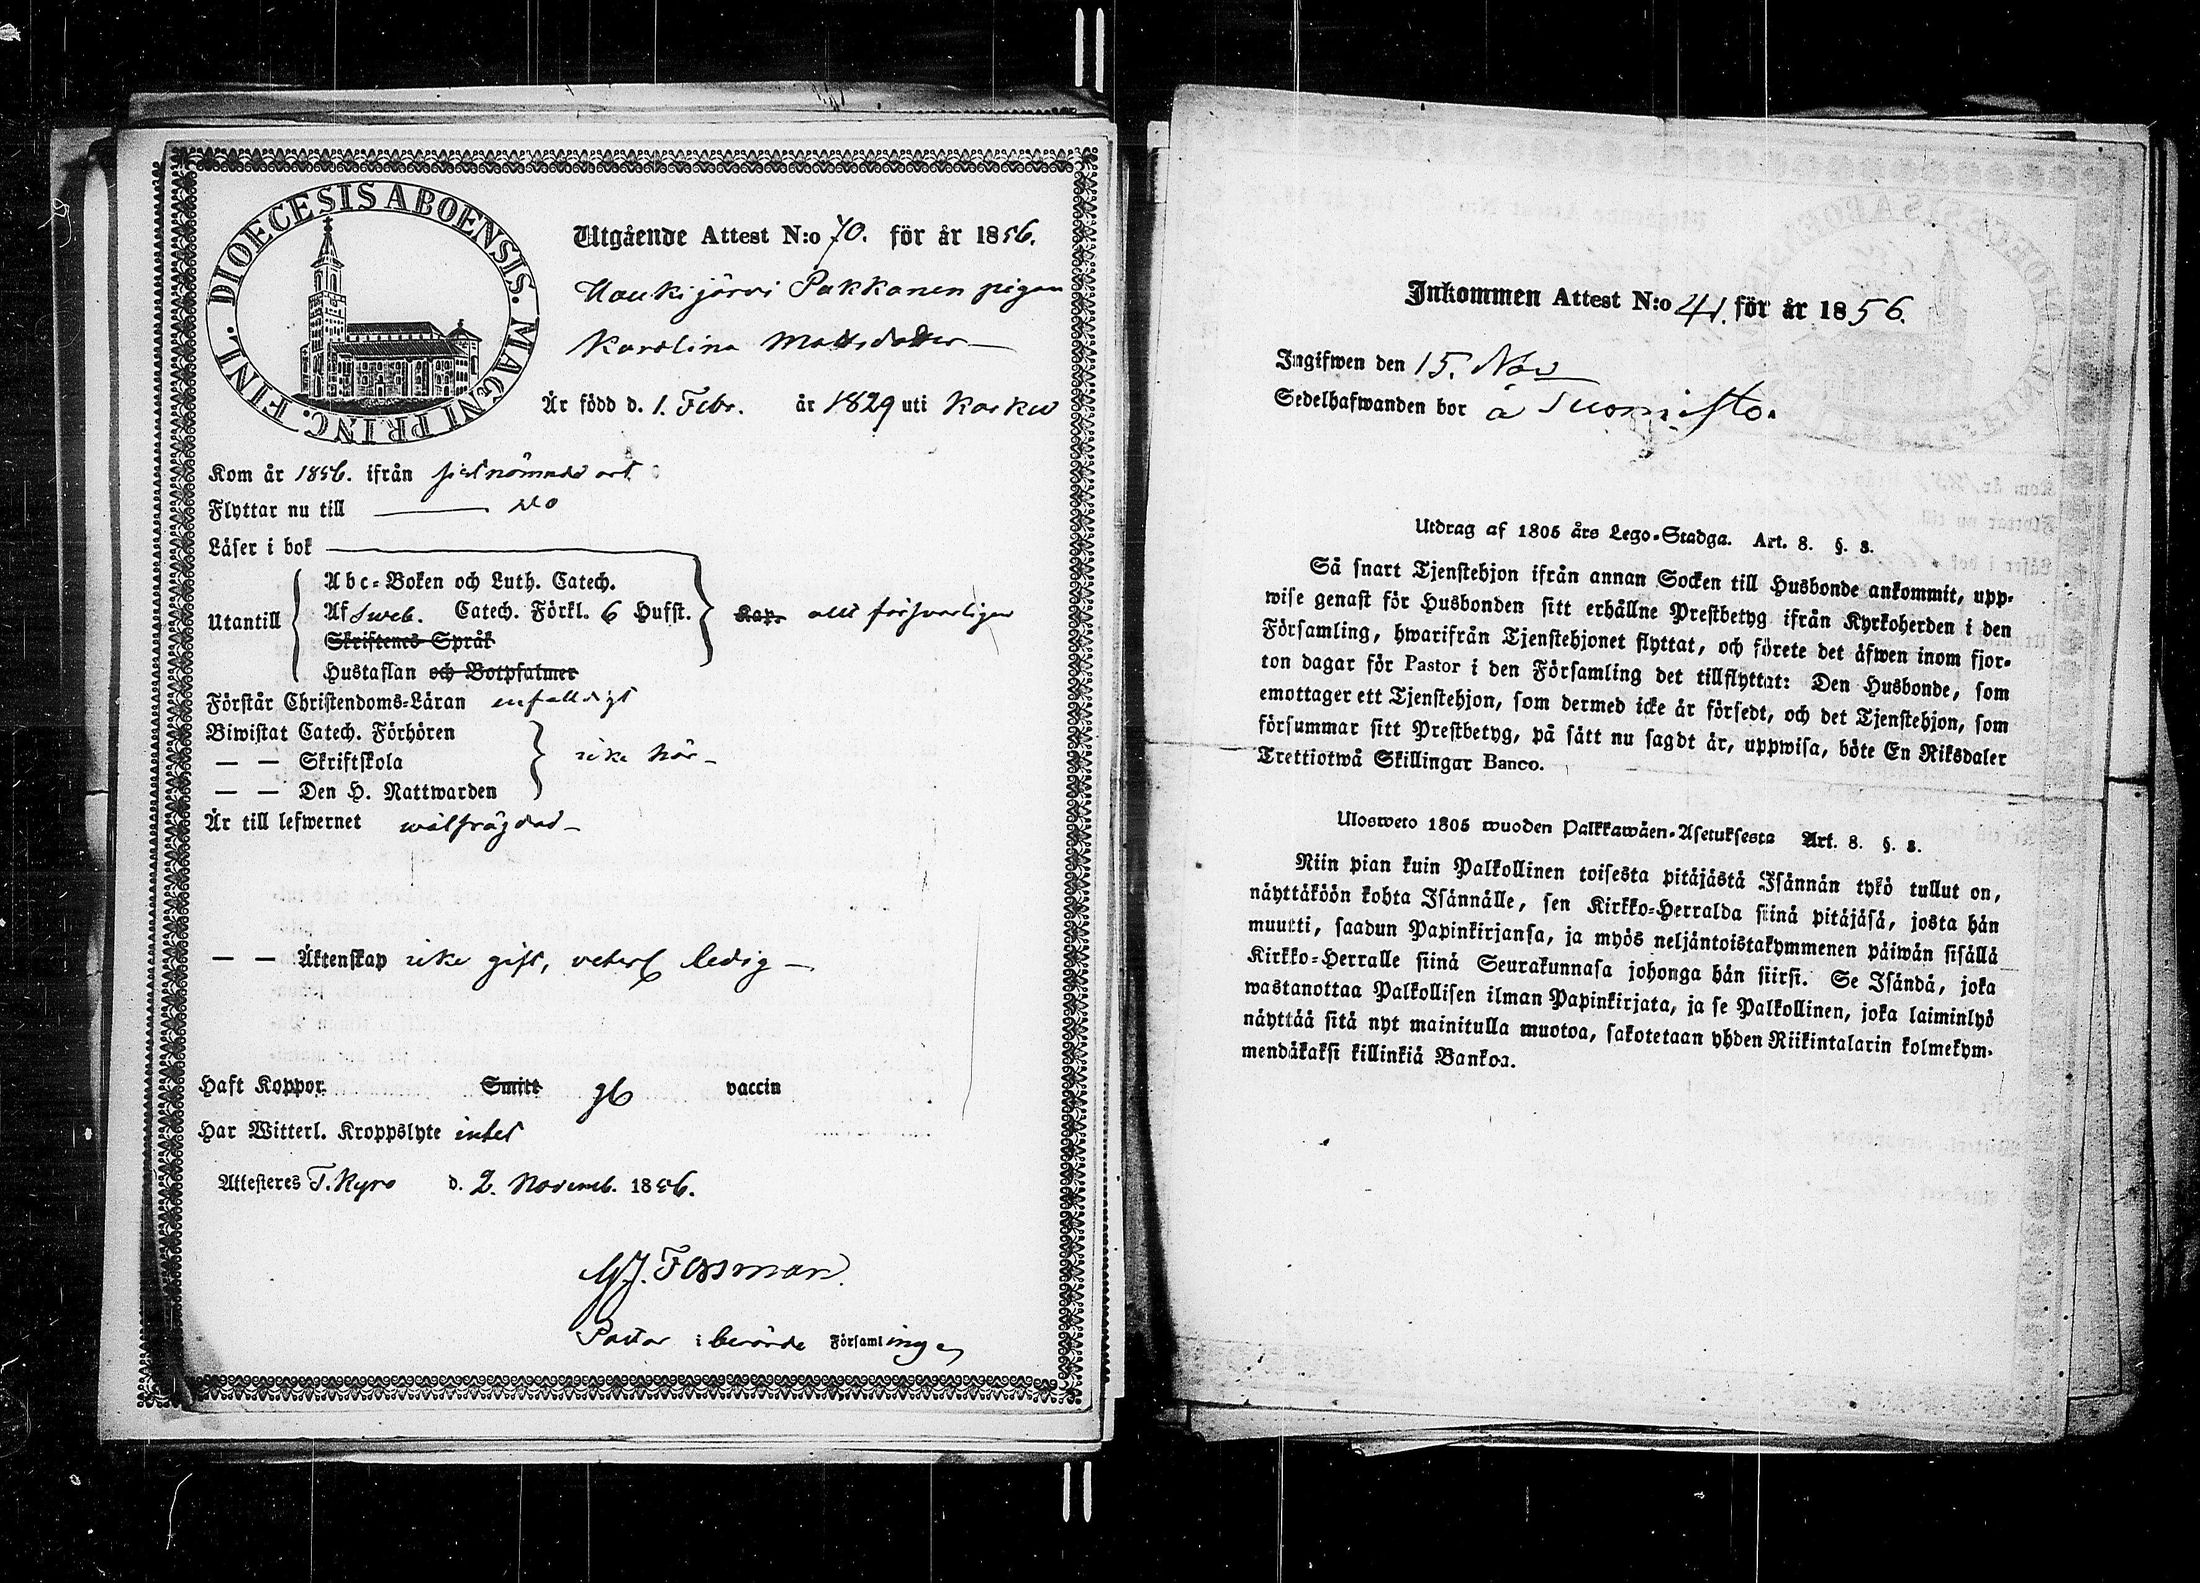 DIOECESIS ABOENSIS. MAGNI PRINC. FINL.
Utgående Attest N:o 70. för år 1856.
Haukijärvi Pakkanen pigan
Karolina Mattsdotter —
Är född d. 1. Febr. år 1829 uti Karku
Kom år 1856. ifrån sistnämnde ort
Flyttar nu till ——— do
Läser i bok
Utantill
Abc-Boken och Luth. Catech.
Af Sveb. Catech. Förkl. 6 Hufst.
Skriftenes Språk
Hustaflan och Botpsalmer
Kap. allt försvarligen
Förstår Christendoms-Läran enfalldigt
Biwistat Catech. Förhören
— — Skriftskola
— — Den H. Nattwarden
icke här —
Är till lefwernet wälfrägdad —
— — Äktenskap icke gift, ledig —
Haft Koppor Smitt vaccin
Har Witterl. Kroppslyte intet
Attesteres T. Kyro d. 2. Novemb. 1856.
Pastor i berörde Församlingen
Inkommen Attest N:o 41. för år 1856.
Ingifwen den 15. Nov
Sedelhafwanden bor å Suomisto.
Utdrag af 1805 års Lego-Stadga. Art. 8. §. 3.
Så snart Tjenstehjon ifrån annan Socken till Husbonde ankommit, upp-
wise genast för Husbonden sitt erhållne Prestbetyg ifrån Kyrkoherden i den
Församling, hwarifrån Tjenstehjonet flyttat, och förete det äfwen inom fjor-
ton dagar för Pastor i den Församling det tillflyttat: Den Husbonde, som
emottager ett Tjenstehjon, som dermed icke är försedt, och det Tjenstehjon, som
försummar sitt Prestbetyg, på sätt nu sagdt är, uppwisa, böte En Riksdaler
Trettiotwå Skillingar Banco.
Ulosweto 1805 wuoden Palkkawäen-Asetuksesta Art. 8. §. 3.
Niin pian kuin Palkollinen toisesta pitäjästä Isännän tykö tullut on,
näyttäköön kohta Isännälle, sen Kirkko-Herralda siinä pitäjäsä, josta hän
muutti, saadun Papinkirjansa, ja myös neljäntoistakymmenen päiwän sisällä
Kirkko-Herralle siinä Seurakunnasa johonga hän siirsi. Se Isändä, joka
wastanottaa Palkollisen ilman Papinkirjata, ja se Palkollinen, joka laiminlyö
näyttää sitä nyt mainitulla muotoa, sakotetaan yhden Riikintalarin kolmekym-
mendäkaksi killinkiä Bankoa.